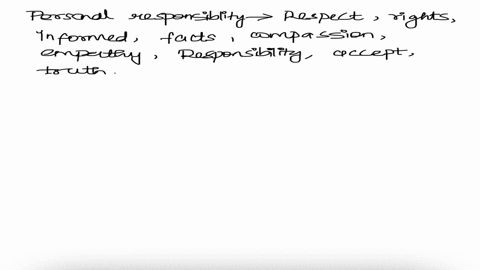 Personal responsiblity → Respect, rights,
Informed, facts, compassion,
empathy, Responsibility, accept,
truth.